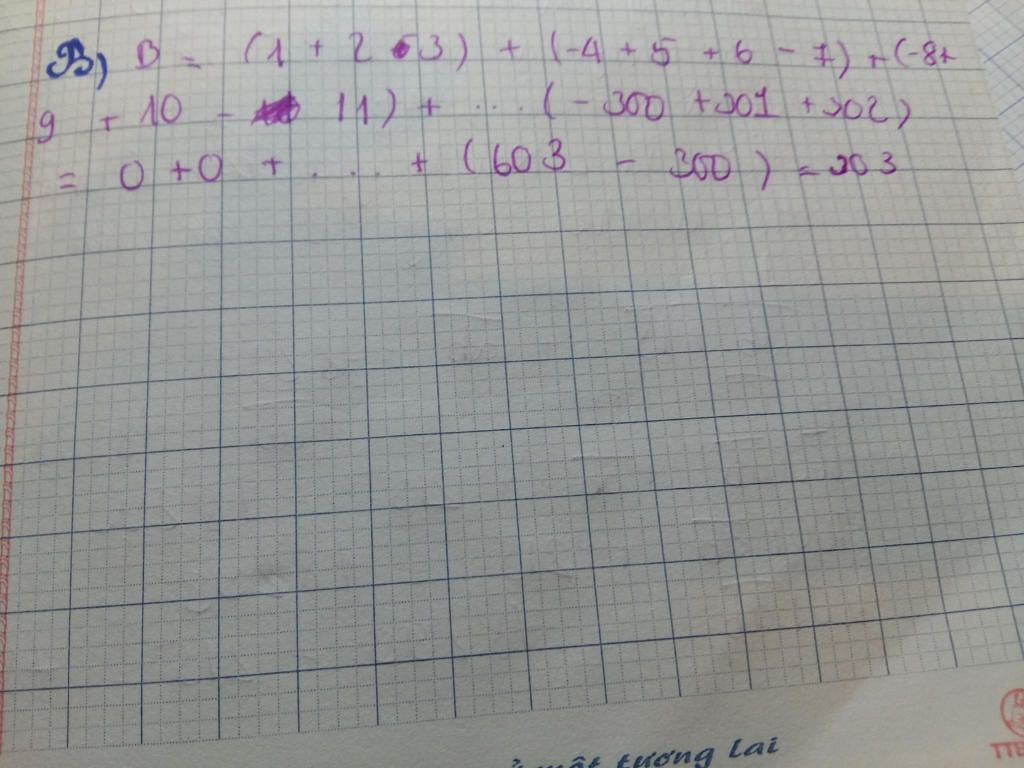 B) B = (1 + 2 - 3) + (-4 + 5 + 6 - 7) + (-8+
9 + 10 - 11) + ... (-300 +301 +302)
= 0 +0 + ... + (603 - 300) = 303
một tương lai